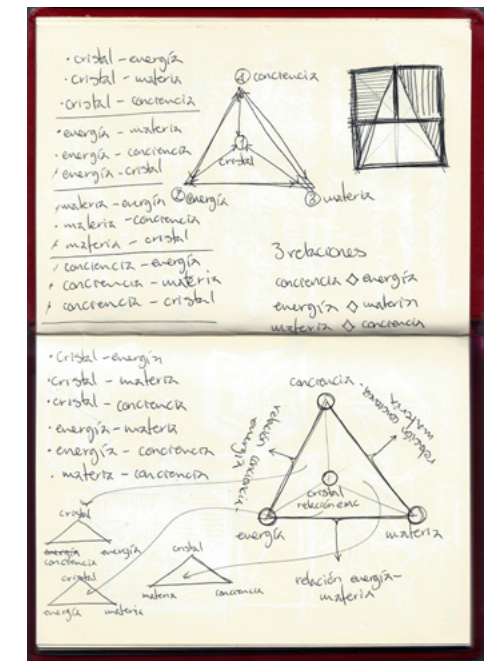 · cristal - energía
· cristal - materia
· cristal - conciencia
· energía - materia
· energía - conciencia
· energía - cristal
· materia - energía
· materia - conciencia
· materia - cristal
· conciencia - energía
· conciencia - materia
· conciencia - cristal
4 conciencia
1
cristal
2 energía
3 materia
3 relaciones
conciencia ◇ energía
energía ◇ materia
materia ◇ conciencia
· cristal - energía
· cristal - materia
· cristal - conciencia
· energía - materia
· energía - conciencia
· materia - conciencia
conciencia
relación conciencia-
energía
relación conciencia-
materia
cristal
relación emc
energía
materia
relación energía-
materia
cristal
energía
conciencia
energía
cristal
energía
materia
cristal
materia
conciencia